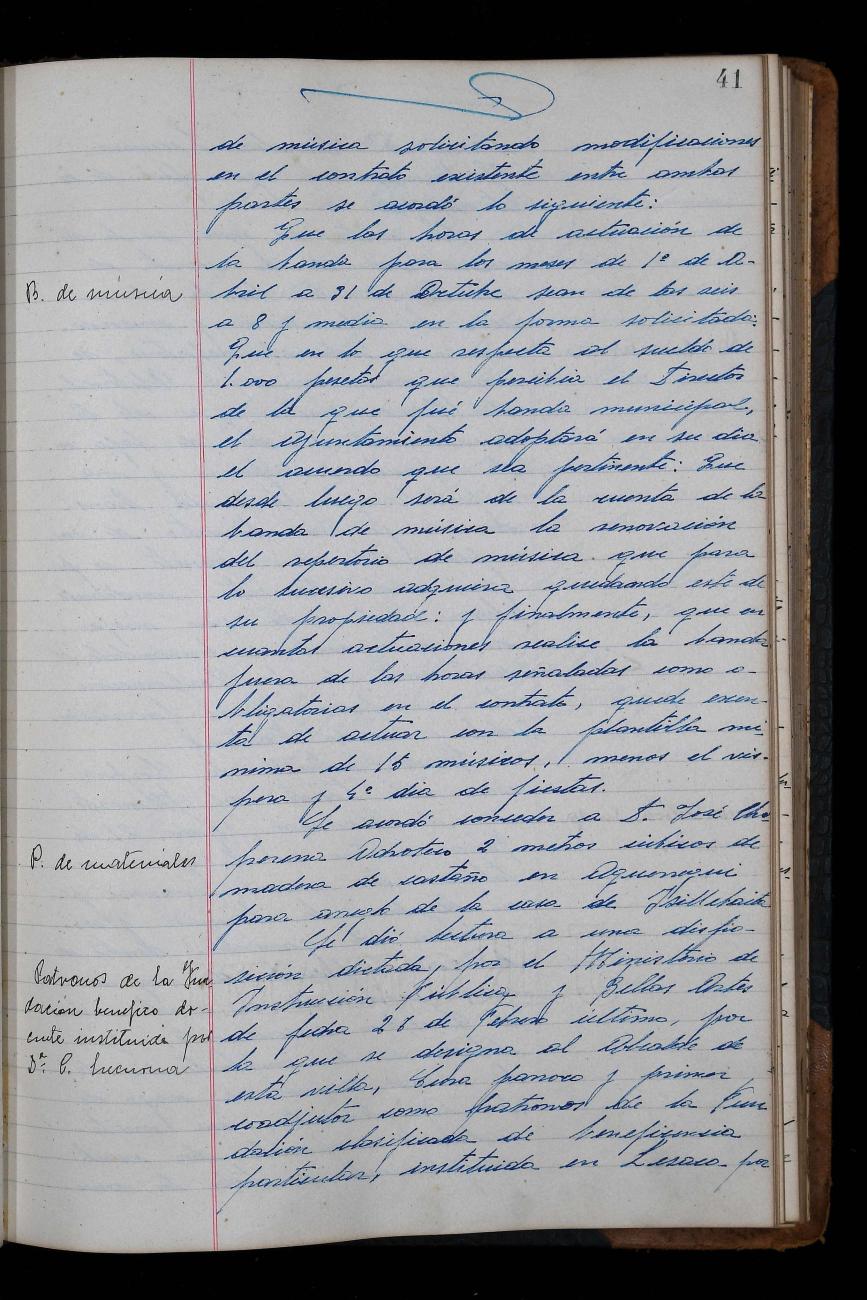 41
de música solicitando modificaciones
en el contrato existente entre ambas
partes se acordó lo siguiente:
Que las horas de actuación de
la banda para los meses de 1º de A-
B. de música
bril a 31 de Octubre sean de las seis
a 8 y media en la forma solicitada:
Que en lo que respecta al sueldo de
1.000 pesetas que percibia el Director
de la que fué banda municipal,
el Ayuntamiento adoptará en su dia
el acuerdo que sea pertinente: Que
desde luego será de la cuenta de la
banda de música la renovación
del repertorio de música que para
lo sucesivo adquiera quedando este de
su propiedad: y finalmente, que en
cuantas actuaciones realise la banda
fuera de las horas señaladas como o-
bligatorias en el contrato, quede exen-
ta de actuar con la plantilla mi
nima de 15 músicos, menos el vis-
pera y 4º dia de fiestas.
Se acordó conceder a D. José
P. de materiales
2 metros cubicos de
madera de castaño en
para areglo de la casa de
Se dió lectura a una dispo-
sición dictada, por el Ministerio de
Patronos de la Fun
dación benefico do-
cente instituida por
Dª C.
Instrucción Pública y Bellas Artes
de fecha de Febrero último, por
la que se designa al Alcalde de
esta villa, Cura parroco y primer
coadjutor como patronos de la Fun
dación clasificada de beneficencia
particular, instituida en Lesaca por